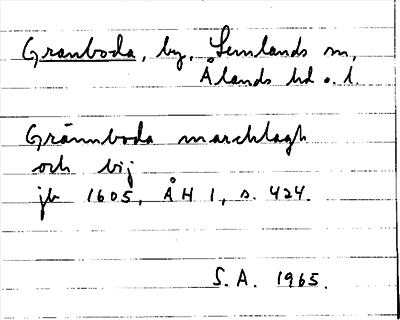 Granboda, by, Lemlands sn,
Ålands hd o. l.
Grännboda marchlagh
och bij
jb 1605, ÅH 1, s. 424.
S.A. 1965.